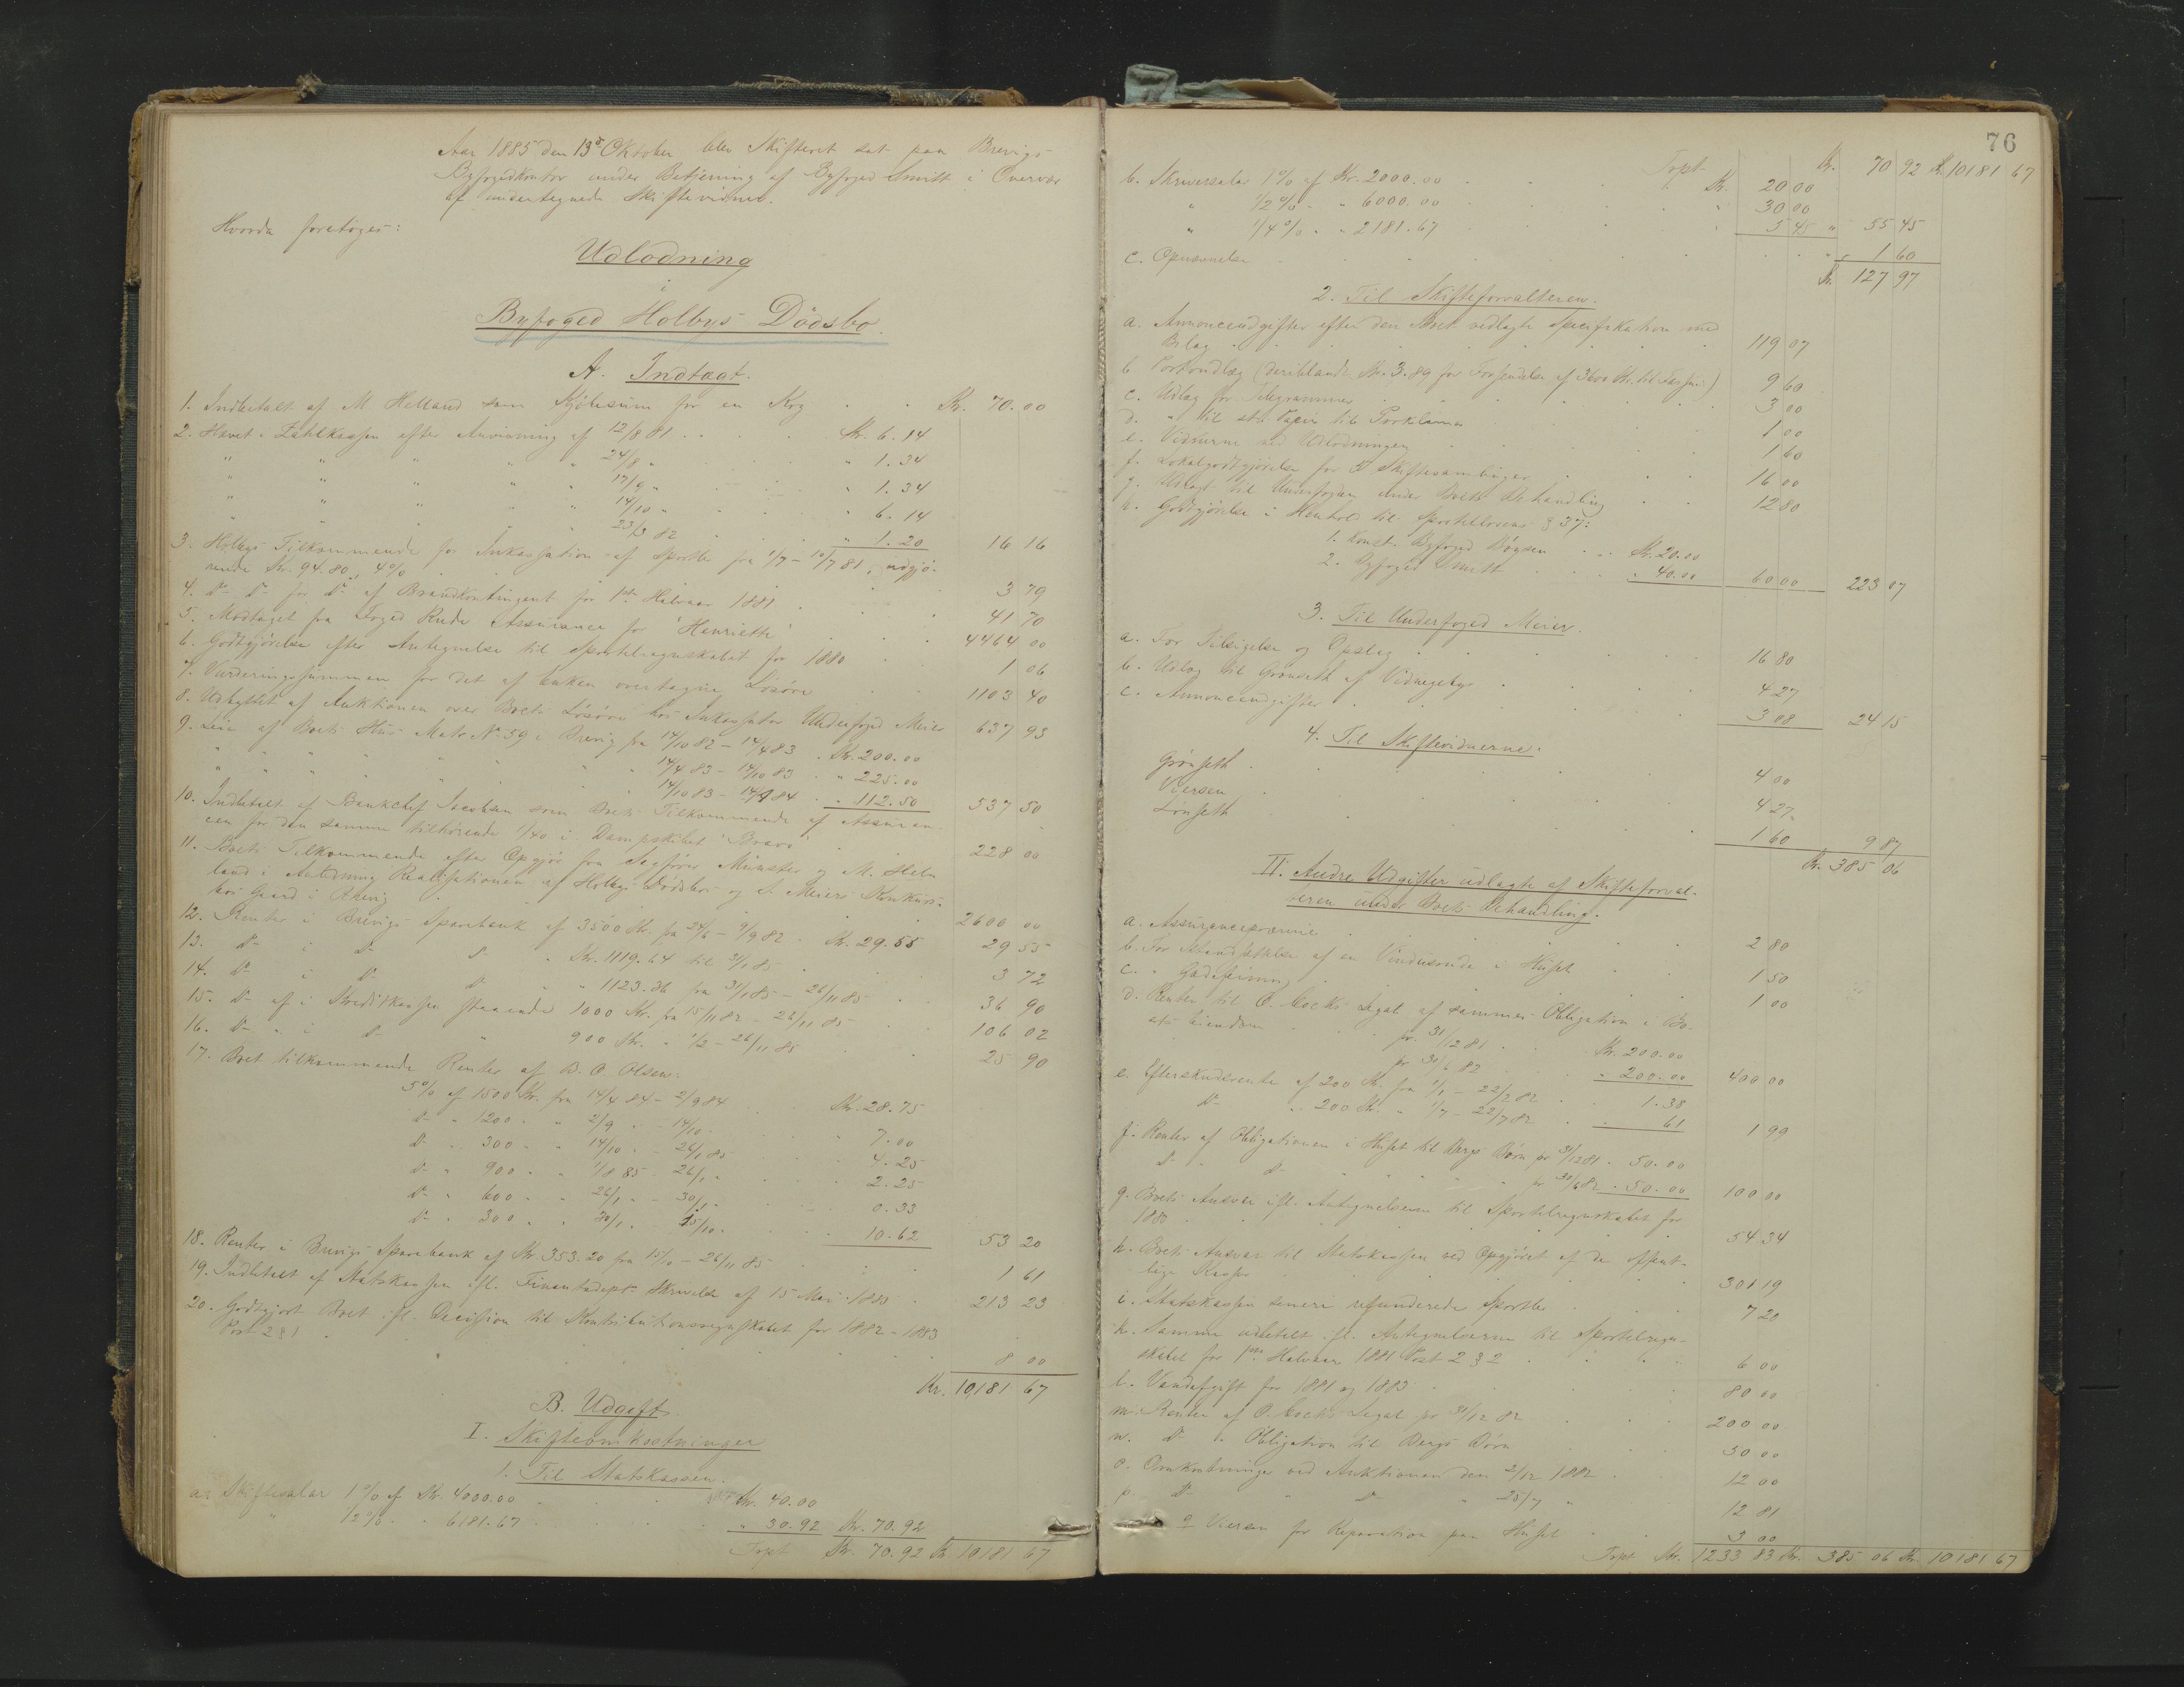 Aar 1885 den 13de Oktober blev Skifteret sat paa Brevigs
Byfogedkontor under Betjening af Byfoged Smitt i Overvær
af undertegnede Skiftevidner.
Hvorda foretoges:
Udlodning
i
Byfoged Holbys Dödsbo.
A. Indtægt.
1. Indbetalt af M. Helland som Kjöbesum for en Kog Kr. 70.00
2. Hævet i Zahlkassen efter Anvisning af 12/8 81 Kr. 6.14
" " " " " 24/8 " " 1.34
" " " " " 17/9 " " 1.34
" " " " " 14/10 " " 6.14
" " " " " 23/3 82 " 1.20 16 16
3. Holbys Tilkommende for Inkassation af Sportler fra 1/7 - 10/7 81, udgjö-
rende Kr. 94.80, 4% 3 79
4. Do Do for Do af Brandkontingent for 1ste Halvaar 1881 41 70
5. Modtaget fra Foged Rude Assurance for "Henriette" 4464 00
6. Godtgjörelse efter Antegnelse til Sportelregnskabet for 1880 1 06
7. Vurderingssummen for det af Enken overtagne Lösöre 1103 40
8. Udbyttet af Auktionen over Boets Lösöre hos Inkassator Underfoged Meier 637 93
9. Leie af Boets Hus Matr. No 59 i Brevig fra 14/10 82 - 14/4 83 Kr. 200.00
" " " " " " 14/4 83 - 14/10 83 " 225.00
" " " " " " 14/10 83 - 14/1 84 " 112.50 537 50
10. Indbetalt af Bankchef Jacobsen som Boets Tilkommende af Assuran-
cen for den samme tilhörende 1/40 i Dampskibet "Bravo" 228 00
11. Boets Tilkommende efter Opgjör fra Sagförer Münster og M. Hel-
land i Anledning Realisationen af Holbys Dödsbos og S. Meiers Konkurs-
bos Gaard i 2600 00
12. Renter i Brevigs Sparebank af 3500 Kr. fra 24/6 - 9/9 82 Kr. 29.55 29 55
13. Do i Do Do " Kr. 1119.64 til 31/1 85 3 72
14. Do i Do Do " " 1123.36 fra 31/1 85 - 26/11 85 36 90
15. Do af i Kreditkassen staaende 1000 Kr. fra 15/11 82 - 26/11 85 106 02
16. Do " i Do " 900 Kr. " 1/2 - 26/11 85 25 90
17. Boet tilkommende Renter af B. O. Olsen:
5% af 1500 Kr. fra 14/4 84 - 2/9 84 Kr. 28.75
Do " 1200 " " 2/9 " - 14/10 " 7.00
Do " 300 " " 14/10 " - 26/1 85 4.25
Do " 900 " " 1/8 85 - 26/1 " 2.25
Do " 600 " " 26/1 " - 30/1 " 0.33
Do " 300 " " 30/1 " - 15/10 " 10.62 53 20
18. Renter i Brevigs Sparebank af Kr. 353.20 fra 15/10 - 26/11 85 1 61
19. Indbetalt af Statskassen ifl. Finantsdepts. Skrivelse af 15 Mai 1885 213 23
20. Godtgjort Boet ifl. Decision til Kontributionsregnskabet for 1882 - 1883
Post 2 § 1 8 00
Kr. 10181 67
B. Udgift.
I. Skifteomkostninger
1. Til Statskassen.
a. Skiftesalar 1% af Kr. 4000.00 Kr. 40.00
" 1/2% " " 6181.67 " 30.92 Kr. 70.92
Trpt. Kr. 70.92 Kr. 10181 67
76
Trpt. Kr. 70 92 Kr. 10181 67
b. Skriversalar 1% af Kr. 2000.00 Kr. 20 00
" 1/2% " " 6000.00 " 30 00
" 1/4% " " 2181.67 " 5 45 " 55 45
c. Opnævnelse " 1 60
Kr. 127 97
2. Til Skifteforvalteren.
a. Annonceudgifter efter den Boet vedlagte Specifikation med
Bilag 119 07
b. Portoudlæg (deriblandt Kr. 3.89 for Forsendelse af 3600 Kr. til ) 9 60
c. Udlæg for Telegrammer 3 00
d. " til stb. Papir til Proklama 1 00
e. Vidnerne ved Udlodningen 1 60
f. Lokalgodtgjörelse for 5 Skiftesamlinger 16 00
g. Udlagt til Underfogden under Boets Behandling 12 80
h. Godtgjörelse i Henhold til Sportellovens § 37:
1. Konst. Byfoged Bögsen Kr. 20.00
2. Byfoged Smitt " 40.00 60 00 223 07
3. Til Underfoged Meier.
a. For Tilsigelse og Opslag 16 80
b. Udlæg til Grönseth af Vidnegebyr 4 27
c. Annonceudgifter 3 08 24 15
4. Til Skiftevidnerne.
Grönseth 4 00
Viersen 4 27
Lönseth 1 60 9 87
Kr. 385 06
II. Andre Udgifter udlagte af Skifteforval-
teren under Boets Behandling.
a. Assurancepræmie 2 80
b. For Istandsættelse af en Vindusrude i Huset 1 50
c. " Gadefeining 1 00
d. Renter til O. Cocks Legat af sammes Obligation i Bo-
ets Eiendom pr. 31/12 81 Kr. 200.00
pr. 30/6 82 " 200.00 400 00
e. Efterskudsrente af 200 Kr. fra 1/1 - 22/2 82 1.38
Do " 200 Kr. " 1/7 - 22/7 82 61 1 99
f. Renter af Obligationen i Huset til Bergs Börn pr 31/12 81 " 50.00
Do " Do " " " " pr 30/6 82 " 50.00 100 00
g. Boets Ansvar ifl. Antegnelserne til Sportelregnskabet for
1880 54 34
h. Boets Ansvar til Statskassen ved Opgjöret af de offent-
lige Kasser 301 19
i. Statskassen senere refunderede Sportler 7 20
k. Samme udbetalt ifl. Antegnelserne til Sportelregn-
skabet for 1ste Halvaar 1881 Post 2 § 2 6 00
l. Vandafgift for 1881 og 1883 80 00
m. Renter af O. Cocks Legat pr 31/12 82 200 00
n. Do " Obligation til Bergs Börn 50 00
o. Omkostninger ved Auktionen den 2/12 1882 12 00
p. Do " Do " 25/7 " 12 81
q. Viersen for Reparation paa Huset 3 00
Trpt. Kr. 1233 83 Kr. 385 06 Kr. 10181 67